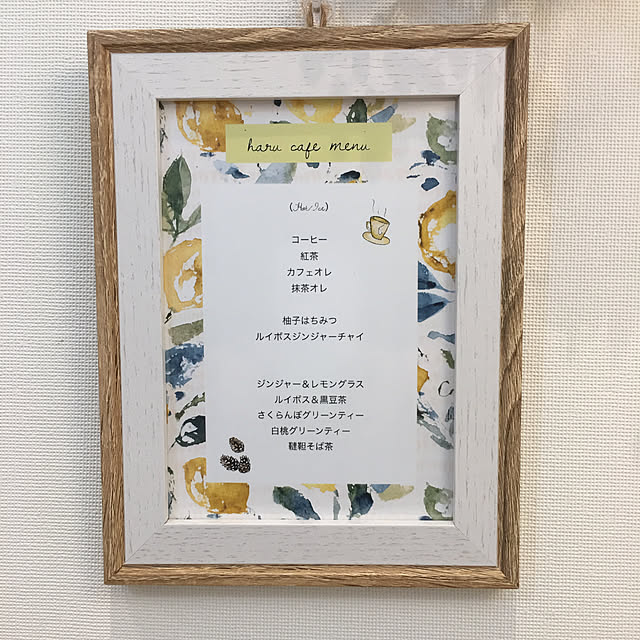 haru cafe menu
(Hot/Ice)
コーヒー
紅茶
カフェオレ
抹茶オレ
柚子はちみつ
ルイボスジンジャーチャイ
ジンジャー&レモングラス
ルイボス&黒豆茶
さくらんぼグリーンティー
白桃グリーンティー
韃靼そば茶